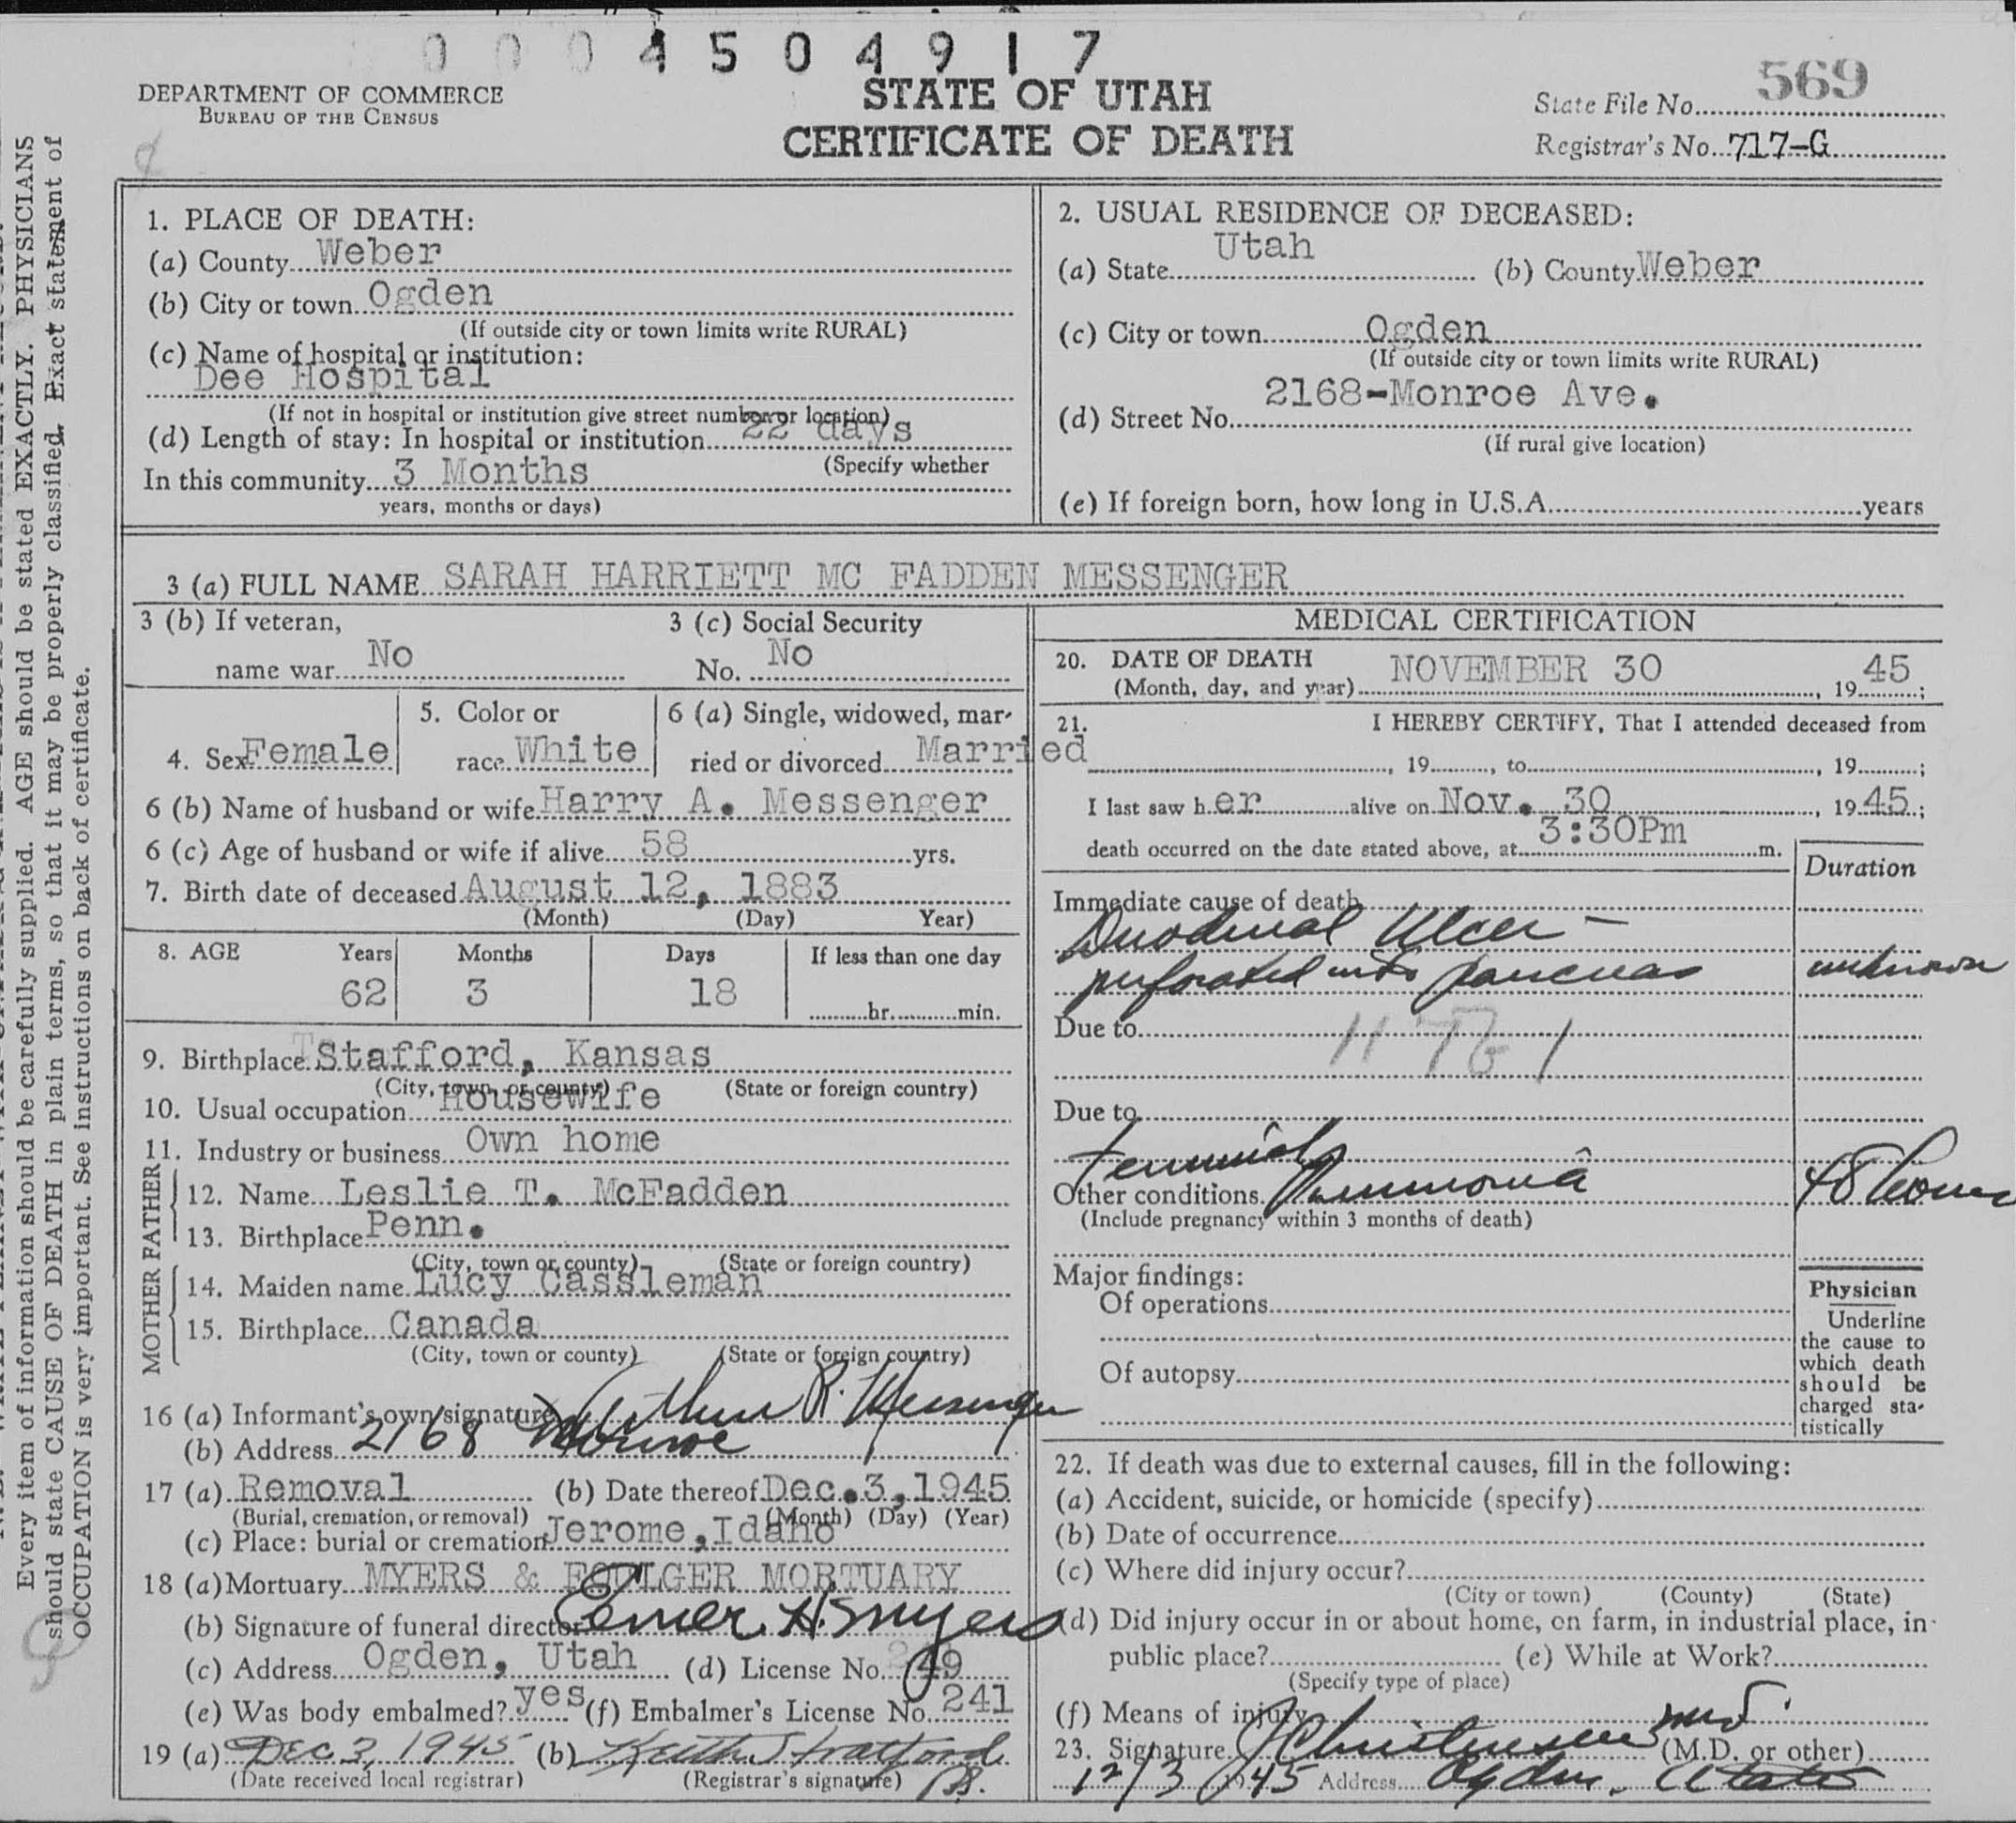 0004504917
DEPARTMENT OF COMMERCE
BUREAU OF THE CENSUS
STATE OF UTAH
CERTIFICATE OF DEATH
State File No. 569
Registrar's No. 717-G
Every item of information should be carefully supplied. AGE should be stated EXACTLY. PHYSICIANS
should state CAUSE OF DEATH in plain terms, so that it may be properly classified. Exact statement of
OCCUPATION is very important. See instructions on back of certificate.
1. PLACE OF DEATH:
(a) County Weber
(b) City or town Ogden
(If outside city or town limits write RURAL)
(c) Name of hospital or institution:
Dee Hospital
(If not in hospital or institution give street number or location)
(d) Length of stay: In hospital or institution 22 days
(Specify whether
In this community 3 Months
years, months or days)
2. USUAL RESIDENCE OF DECEASED:
(a) State Utah (b) County Weber
(c) City or town Ogden
(If outside city or town limits write RURAL)
(d) Street No. 2168-Monroe Ave.
(If rural give location)
(e) If foreign born, how long in U.S.A. years
3 (a) FULL NAME SARAH HARRIETT MC FADDEN MESSENGER
3 (b) If veteran,
name war No
3 (c) Social Security
No. No
4. Sex Female
5. Color or
race White
6 (a) Single, widowed, mar-
ried or divorced Married
6 (b) Name of husband or wife Harry A. Messenger
6 (c) Age of husband or wife if alive 58 yrs.
7. Birth date of deceased August 12, 1883
(Month) (Day) Year)
8. AGE Years Months Days If less than one day
62 3 18 hr. min.
9. Birthplace Stafford, Kansas
(City, town, or county) (State or foreign country)
10. Usual occupation Housewife
11. Industry or business Own home
FATHER
12. Name Leslie T. McFadden
13. Birthplace Penn.
(City, town or county) (State or foreign country)
MOTHER
14. Maiden name Lucy Cassleman
15. Birthplace Canada
(City, town or county) (State or foreign country)
16 (a) Informant's own signature Arthur R. Messenger
(b) Address 2168 Monroe
17 (a) Removal (b) Date thereof Dec. 3, 1945
(Burial, cremation, or removal) (Month) (Day) (Year)
(c) Place: burial or cremation Jerome, Idaho
18 (a) Mortuary MYERS & FOULGER MORTUARY
(b) Signature of funeral director Elmer H. Myers
(c) Address Ogden, Utah (d) License No. 49
(e) Was body embalmed? yes (f) Embalmer's License No. 241
19 (a) Dec 3, 1945 (b) Keith Stratford
(Date received local registrar) (Registrar's signature)
MEDICAL CERTIFICATION
20. DATE OF DEATH NOVEMBER 30 1945;
(Month, day, and year)
21. I HEREBY CERTIFY, That I attended deceased from
, 19 , to , 19 ;
I last saw her alive on Nov. 30 , 1945;
death occurred on the date stated above, at 3:30Pm m.
Duration
Immediate cause of death
Duodenal Ulcer -
perforated into pancreas unknown
Due to
Due to
Terminal
Other conditions Pneumonia 48 hours
(Include pregnancy within 3 months of death)
Major findings:
Of operations
Of autopsy
Physician
Underline
the cause to
which death
should be
charged sta-
tistically
22. If death was due to external causes, fill in the following:
(a) Accident, suicide, or homicide (specify)
(b) Date of occurrence
(c) Where did injury occur?
(City or town) (County) (State)
(d) Did injury occur in or about home, on farm, in industrial place, in
public place? (e) While at Work?
(Specify type of place)
(f) Means of injury
23. Signature Christensen MD. (M.D. or other)
12/3 1945 Address Ogden, Utah